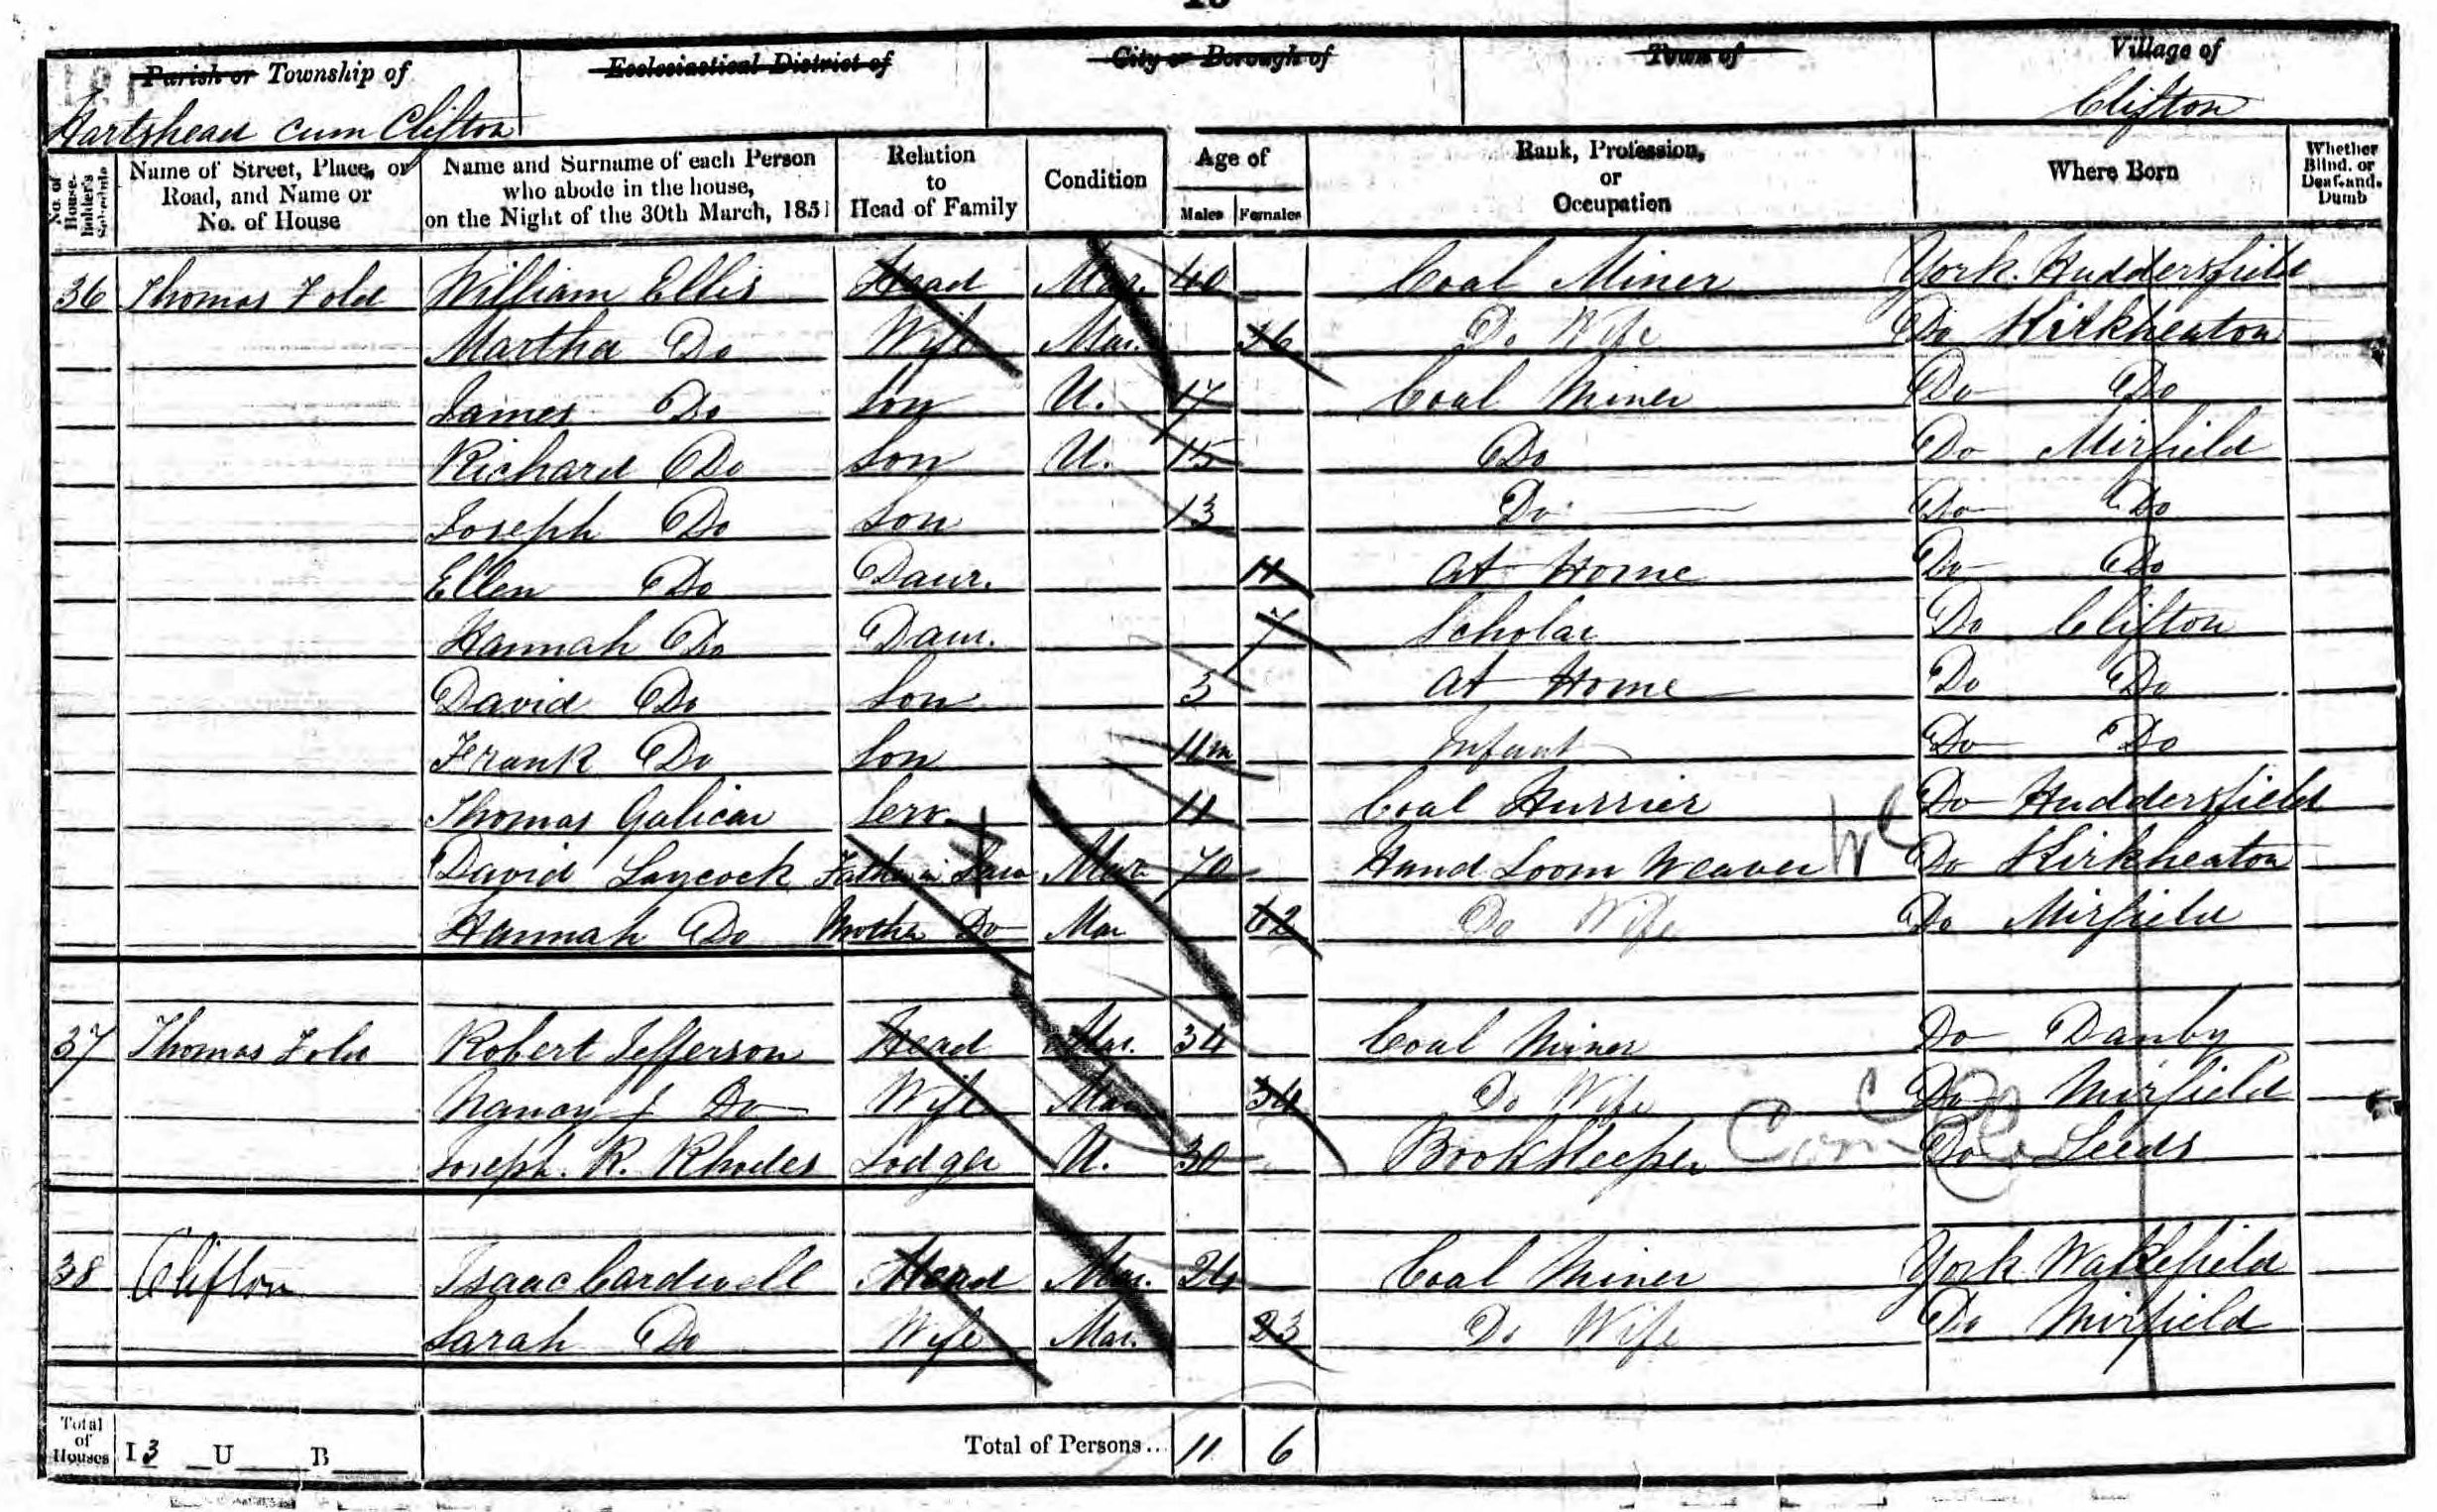 Parish or Township of Ecclesiastical District of City or Borough of Town of Village of
Hartshead cum Clifton Clifton
No. of House-holder's Schedule Name of Street, Place, or Road, and Name or No. of House Name and Surname of each Person who abode in the house, on the Night of the 30th March, 1851 Relation to Head of Family Condition Age of Males Females Rank, Profession, or Occupation Where Born Whether Blind, or Deaf-and-Dumb
36 Thomas Fold William Ellis Head Mar. 40 Coal Miner York. Huddersfield
Martha Do Wife Mar. 36 Do Wife Do Kirkheaton
James Do Son U. 17 Coal Miner Do Do
Richard Do Son U. 15 Do Do Mirfield
Joseph Do Son 13 Do Do Do
Ellen Do Daur. 11 At Home Do Do
Hannah Do Daur. 7 Scholar Do Clifton
David Do Son 3 At Home Do Do
Frank Do Son 11m Infant Do Do
Thomas Galicar Serv. 11 Coal Hurrier Do Huddersfield
David Laycock Father in Law Mar 70 Hand Loom Weaver Do Kirkheaton
Hannah Do Mother Do Mar 62 Do Wife Do Mirfield
37 Thomas Fold Robert Jefferson Head Mar. 34 Coal Miner Do Danby
Nancy J Do Wife Mar 34 Do Wife Do Mirfield
Joseph. R. Rhodes Lodger U. 30 Book Keeper Do Leeds
38 Clifton Isaac Cardwell Head Mar. 24 Coal Miner York Wakefield
Sarah Do Wife Mar. 23 Do Wife Do Mirfield
Total of Houses I 3 U B Total of Persons... 11 6